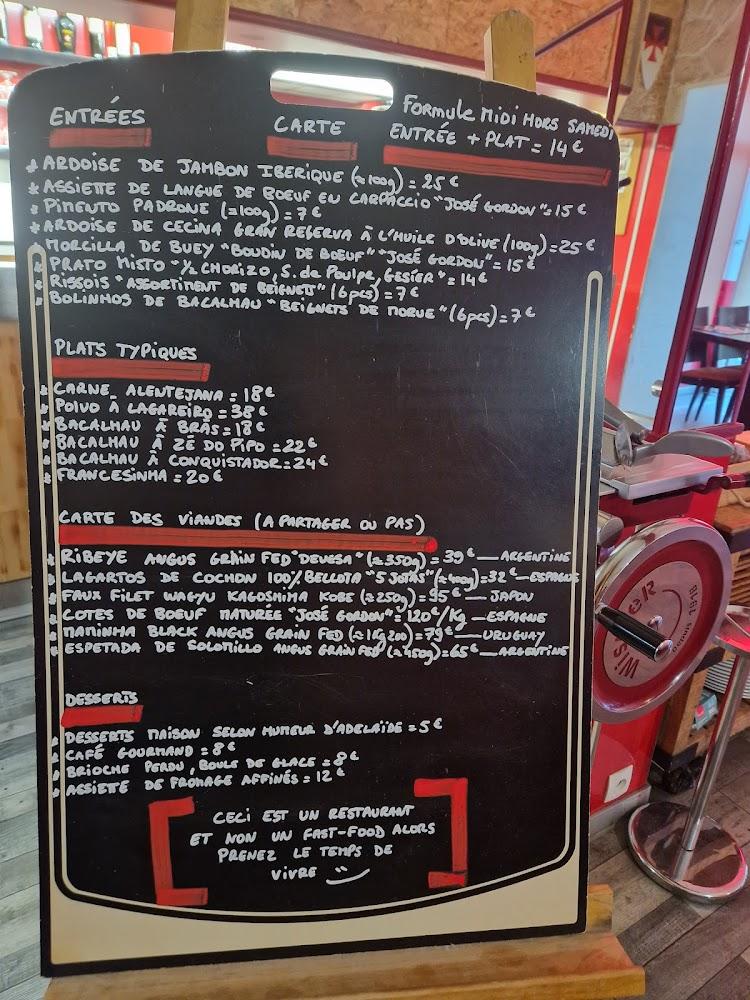 FORMULE MIDI HORS SAMEDI
ENTRÉES
CARTE
ENTRÉE + PLAT = 14 €
* ARDOISE DE JAMBON IBERIQUE (≈100g) = 25 €
* ASSIETTE DE LANGUE DE BOEUF EN CARPACCIO "JOSÉ GORDON" = 15 €
* PIMENTO PADRONE (≈100g) = 7 €
* ARDOISE DE CECINA GRAN RESERVA À L'HUILE D'OLIVE (100g) = 25 €
* MORCILLA DE BUEY "BOUDIN DE BOEUF" "JOSÉ GORDON" = 15 €
* PRATO MISTO "½ CHORIZO, S. de POULPE, GESIER" = 14 €
* RISSOIS "ASSORTIMENT DE BEIGNETS" (6pcs) = 7 €
* BOLINHOS DE BACALHAU "BEIGNETS DE MORUE" (6pcs) = 7 €
PLATS TYPIQUES
* CARNE ALENTEJANA = 18 €
* POLVO À LAGAREIRO = 38 €
* BACALHAU À BRÀS = 18 €
* BACALHAU À ZÉ DO PIPO = 22 €
* BACALHAU À CONQUISTADOR = 24 €
* FRANCESINHA = 20 €
CARTE DES VIANDES (A PARTAGER OU PAS)
* RIBEYE ANGUS GRAIN FED "DEVESA" (≈350g) = 39 € — ARGENTINE
* LAGARTOS DE COCHON 100% BELLOTA "5 JOTAS" (≈400g) = 32 € — ESPAGNE
* FAUX FILET WAGYU KAGOSHIMA KOBE (≈250g) = 95 € — JAPON
* COTES DE BOEUF MATURÉE "JOSÉ GORDON" = 120 €/Kg — ESPAGNE
* MAMINHA BLACK ANGUS GRAIN FED (≈1Kg200) = 79 € — URUGUAY
* ESPETADA DE SOLOMILLO ANGUS GRAIN FED (≈450g) = 65 € — ARGENTINE
DESSERTS
* DESSERTS MAISON SELON HUMEUR D'ADELAÏDE = 5 €
* CAFÉ GOURMAND = 8 €
* BRIOCHE PERDU, BOULE DE GLACE = 8 €
* ASSIETE DE FROMAGE AFFINÉS = 12 €
CECI EST UN RESTAURANT
ET NON UN FAST-FOOD ALORS
PRENEZ LE TEMPS DE
VIVRE